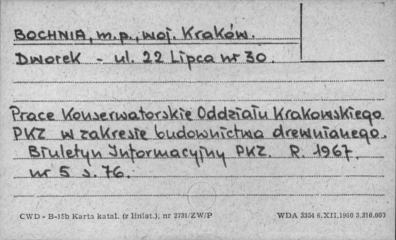 BOCHNIA, m.p., woj. Kraków.
Dworek - ul. 22 Lipca nr 30.
Prace Konserwatorskie Oddziału Krakowskiego
PKZ w zakresie budownictwa drewnianego.
Biuletyn Informacyjny PKZ. R. 1967.
nr 5 s. 76.
CWD - B-15b Karta katal. (z liniat.), nr 2731/ZW/P WDA 3354 6.XII.1960 3.210.003